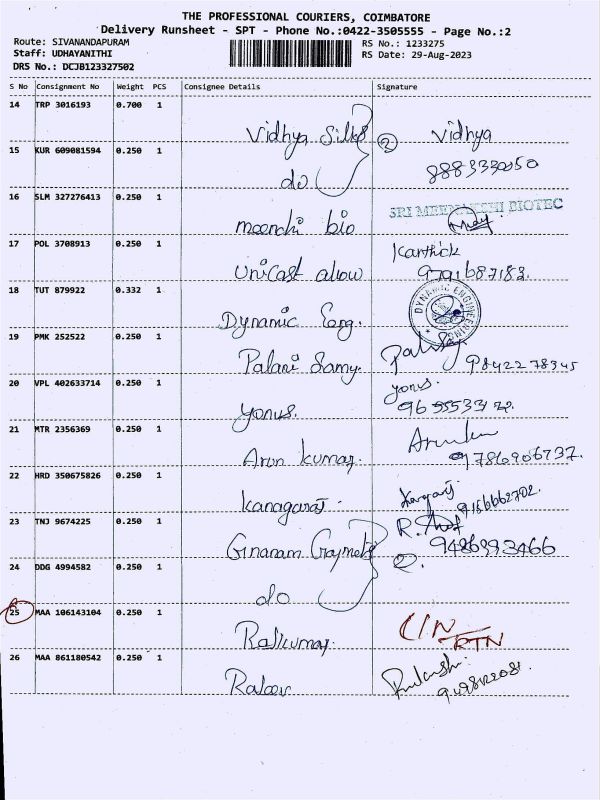 THE PROFESSIONAL COURIERS, COIMBATORE
Delivery Runsheet - SPT - Phone No.:0422-3505555 - Page No.:2
Route: SIVANANDAPURAM RS No.: 1233275
Staff: UDHAYANITHI RS Date: 29-Aug-2023
DRS No.: DCJB123327502
S No Consignment No Weight PCS Consignee Details Signature
14 TRP 3016193 0.700 1 Vidhya Silks 2 Vidhya
15 KUR 609081594 0.250 1 do
16 SLM 327276413 0.250 1 bio SRI MEENAKSHI BIOTEC
17 POL 3708913 0.250 1 Unicast Karthick
9791687183.
18 TUT 879922 0.332 1 Dynamic Eng. DYNAMIC ENGINEERING
19 PMK 252522 0.250 1 Palani Samy. 9842278345
20 VPL 402633714 0.250 1 yonus. yonus.
21 MTR 2356369 0.250 1 Arun kumar.
9786906737.
22 HRD 350675826 0.250 1 Kanagaraj.
23 TNJ 9674225 0.250 1 Gnanam R.
24 DDG 4994582 0.250 1 do 2.
25 MAA 106143104 0.250 1 Rajkumar. RTN
26 MAA 861180542 0.250 1